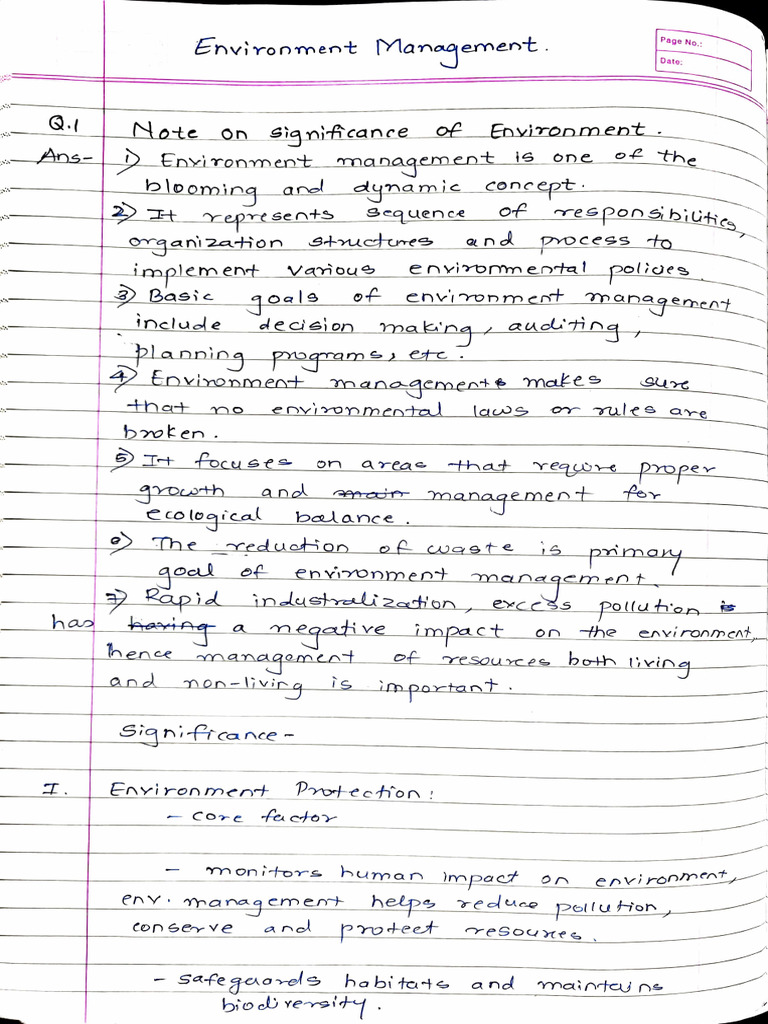 Environment Management.
Page No.:
Date:
Q.1 Note on significance of Environment.
Ans- 1) Environment management is one of the
blooming and dynamic concept.
2) It represents sequence of responsibilities,
organization structures and process to
implement various environmental policies.
3) Basic goals of environment management
include decision making, auditing,
planning programs, etc.
4) Environment management makes sure
that no environmental laws or rules are
broken.
5) It focuses on areas that require proper
growth and main management for
ecological balance.
6) The reduction of waste is primary
goal of environment management.
7) Rapid industralization, excess pollution is
has having a negative impact on the environment,
hence management of resources both living
and non-living is important.
Significance-
I. Environment Protection:
- core factor
- monitors human impact on environment,
env. management helps reduce pollution,
conserve and protect resources.
- safeguards habitats and maintains
biodiversity.